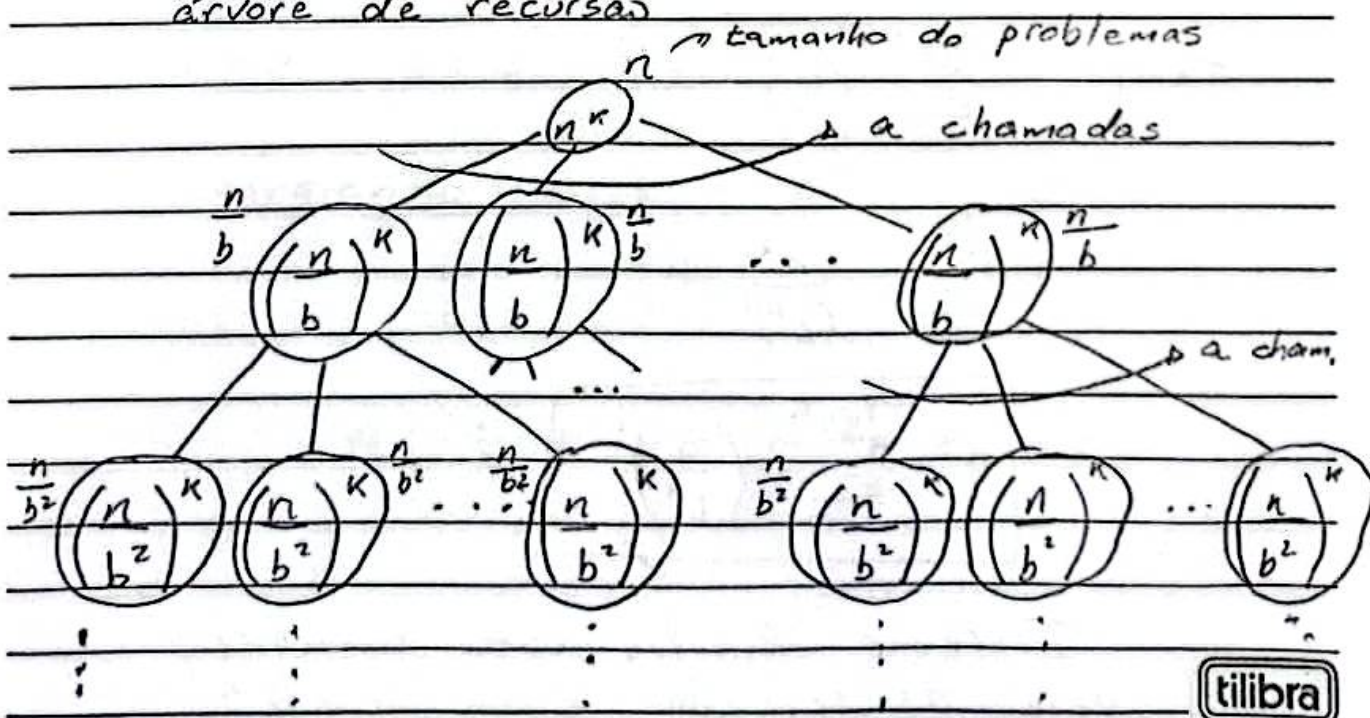 árvore de recursão
tamanho do problemas
n
n^k
a chamadas
n/b (n/b)^k (n/b)^k n/b ... (n/b)^k n/b
a cham.
...
n/b² (n/b²)^k (n/b²)^k n/b² ... n/b² (n/b²)^k n/b² (n/b²)^k (n/b²)^k ... (n/b²)^k
tilibra